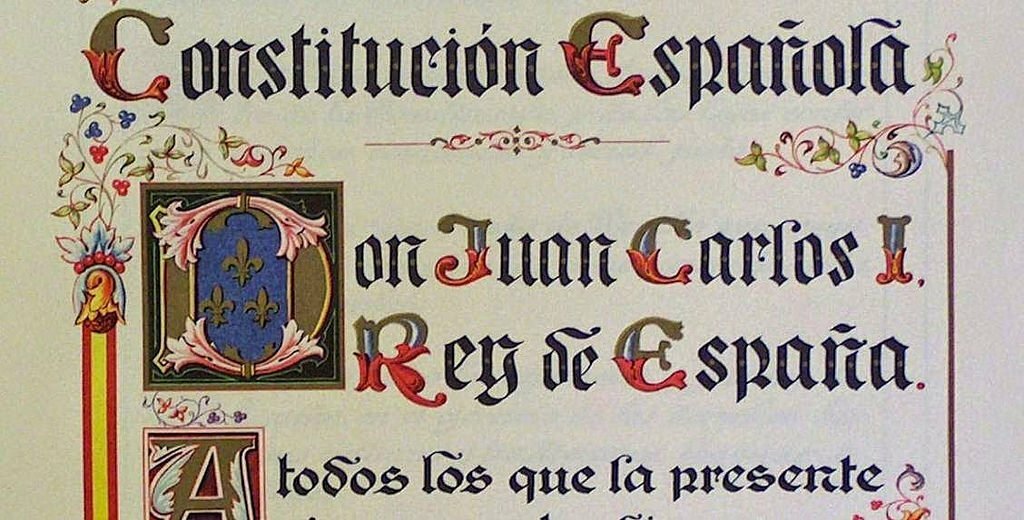 Constitución Española
Don Juan Carlos I.
Rey de España.
A todos los que la presente